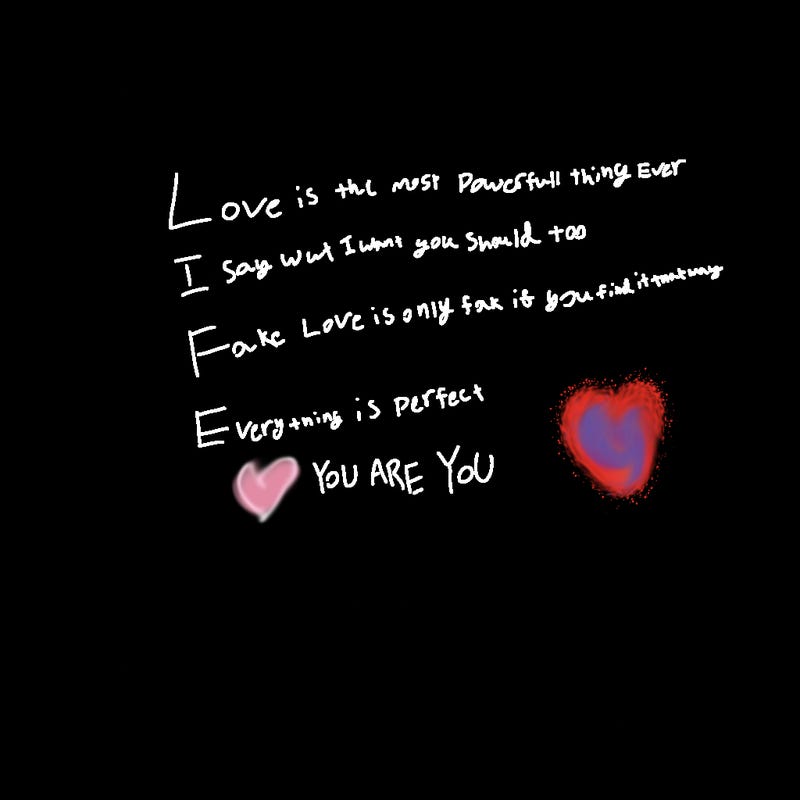 Love is the most Powerfull thing Ever
I Say wut I want you Should too
Fake Love is only fak if you find it that way
Everything is perfect
YOU ARE YOU